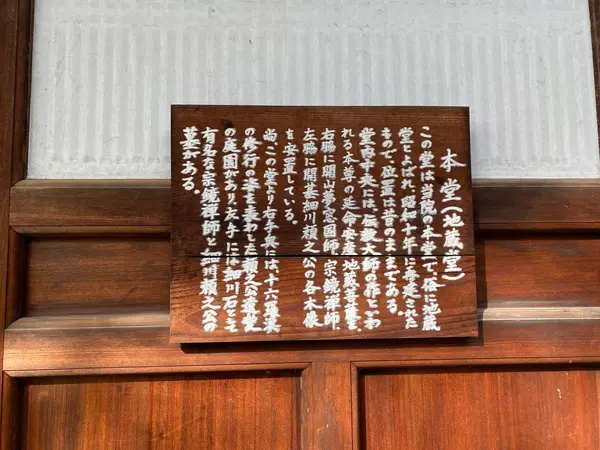 本堂(地蔵堂)
この堂は当院の本堂で、俗に地蔵
堂とよばれ、昭和十年に再建された
もので、位置は昔のままである。
堂内中央には、伝教大師の作といわ
れる本尊の延命安産地蔵菩薩を、
右脇に開山夢窓国師、宗鏡禅師、
左脇に開基細川頼之公の各木像
を安置している。
尚、この堂より右手奥には、十六羅漢
の修行の姿を表わした頼之公遺愛
の庭園があり、左手には細川石とその
有名な宗鏡禅師と細川頼之公の
墓がある。